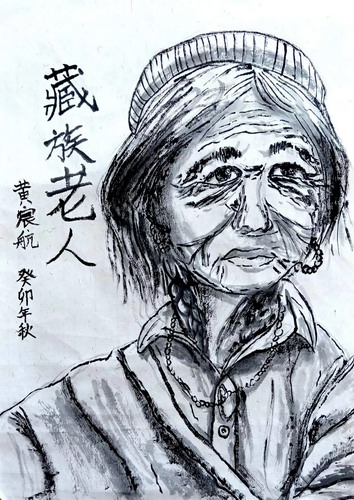 藏族老人
黄宸航
癸卯年秋